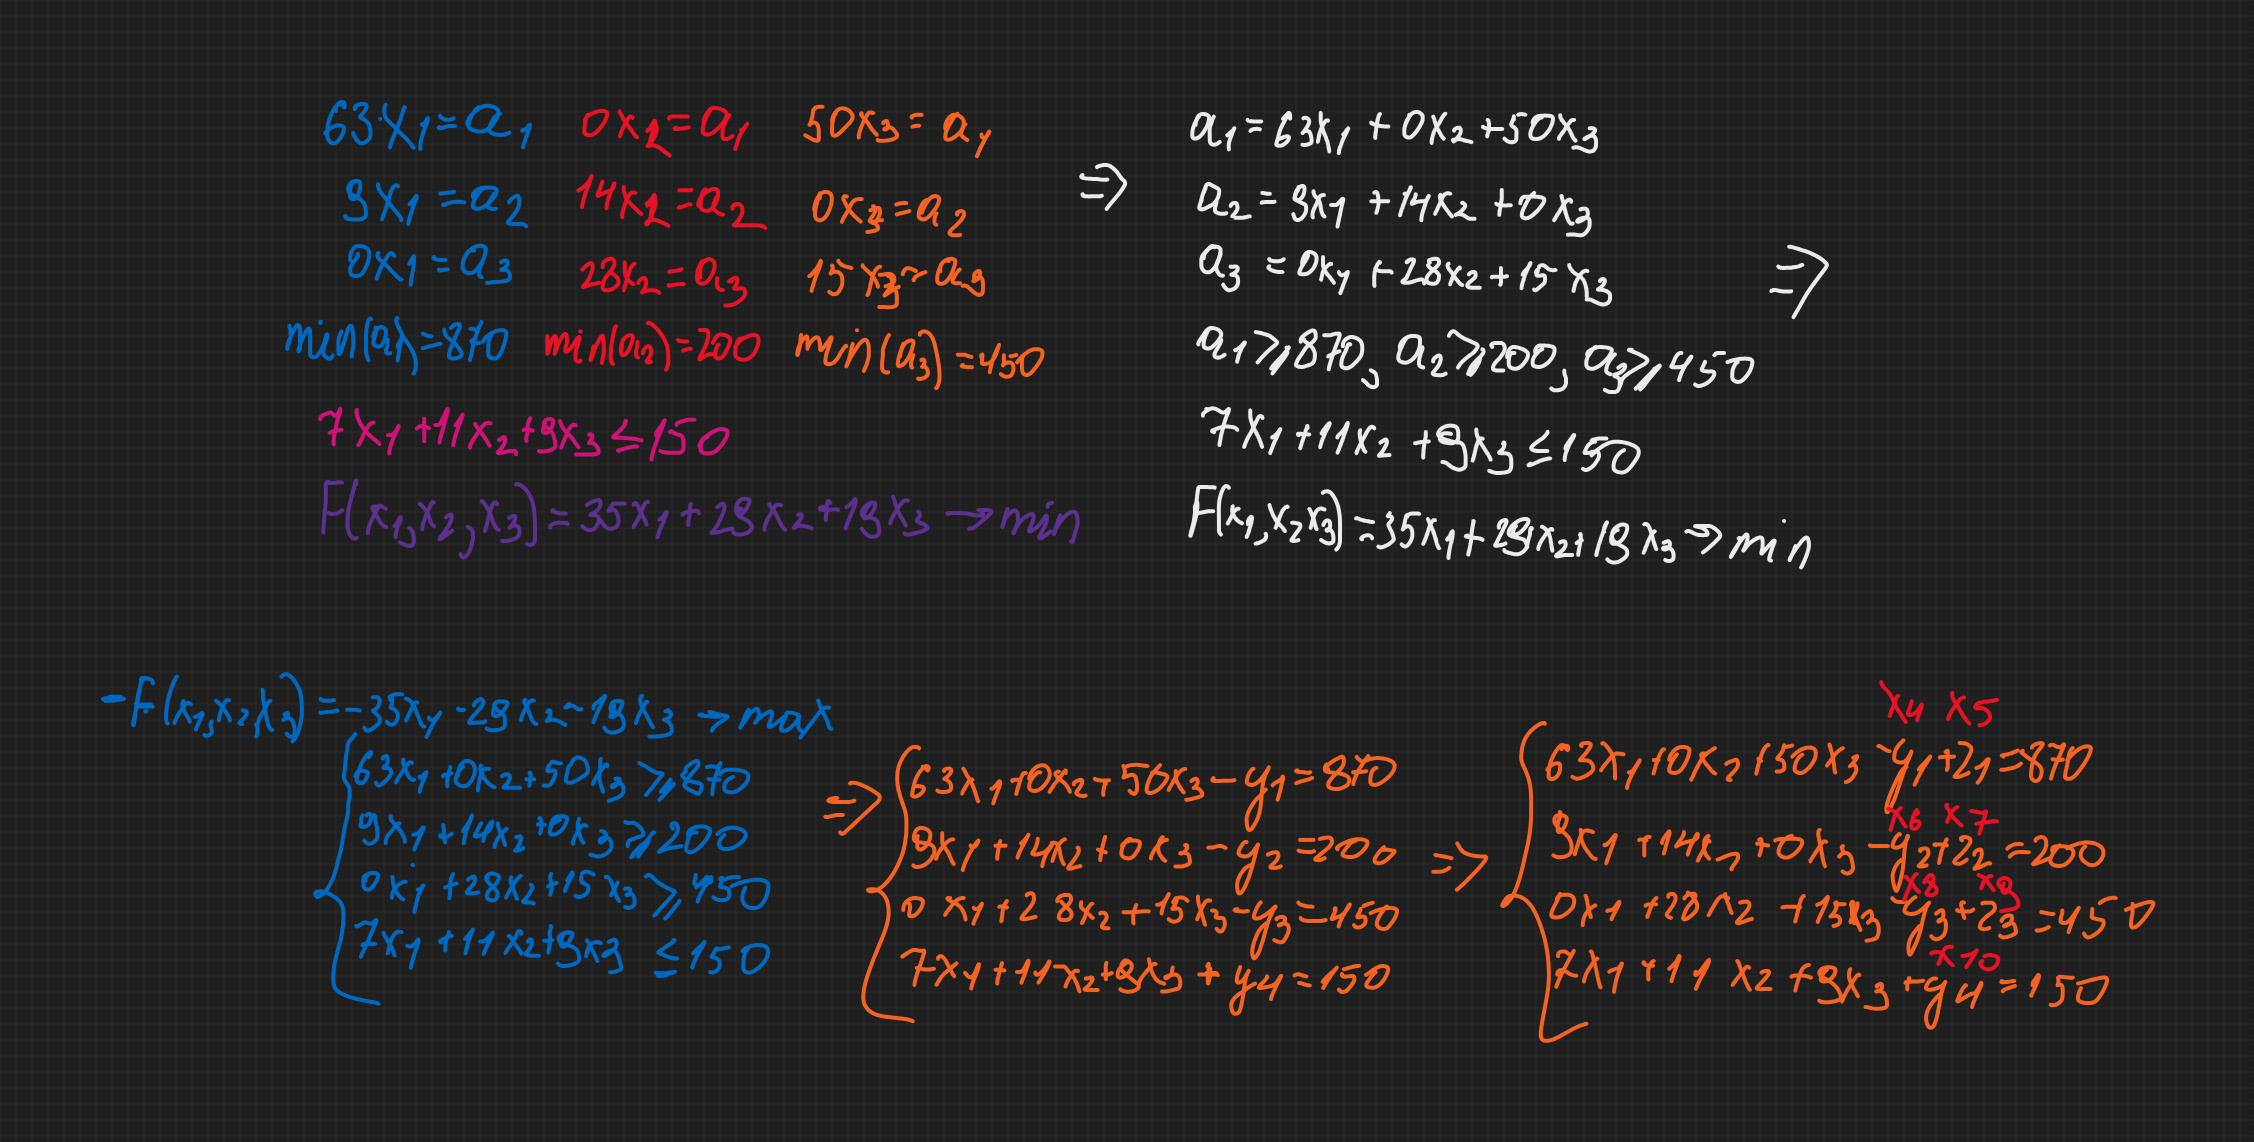 63·x₁=a₁ 0x₂=a₁ 50x₃=a₁
9x₁=a₂ 14x₂=a₂ 0x₃=a₂
0x₁=a₃ 28x₂=a₃ 15x₃=a₃
min(a₁)=870 min(a₂)=200 min(a₃)=450
7x₁+11x₂+9x₃≤150
F(x₁,x₂,x₃)=35x₁+29x₂+19x₃→min
⇒
a₁=63x₁+0x₂+50x₃
a₂=9x₁+14x₂+0x₃
a₃=0x₁+28x₂+15x₃
a₁⩾870, a₂⩾200, a₃⩾450
7x₁+11x₂+9x₃≤150
F(x₁,x₂x₃)=35x₁+29x₂+19x₃→min
⇒
-F(x₁,x₂,x₃)=-35x₁-29x₂-19x₃→max
63x₁+0x₂+50x₃⩾870
9x₁+14x₂+0x₃⩾200
0x₁+28x₂+15x₃⩾450
7x₁+11x₂+9x₃≤150
⇒
63x₁+0x₂+50x₃-y₁=870
9x₁+14x₂+0x₃-y₂=200
0x₁+28x₂+15x₃-y₃=450
7x₁+11x₂+9x₃+y₄=150
⇒
x₄ x₅
63x₁+0x₂+50x₃-y₁+z₁=870
x₆ x₇
9x₁+14x₂+0x₃-y₂+z₂=200
x₈ x₉
0x₁+28x₂+15x₃-y₃+z₃=450
x₁₀
7x₁+11x₂+9x₃+y₄=150